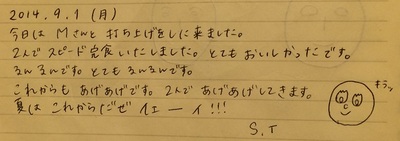 2014.9.1（月）
今日は Mさんと 打ち上げをしに来ました。
2人で スピード完食いたしました。とてもおいしかったです。
るんるんです。とてもるんるんです。
これからも あげあげです。2人で あげあげしてきます。
夏は これからだぜ イェーイ!!!
キラッ
S.T